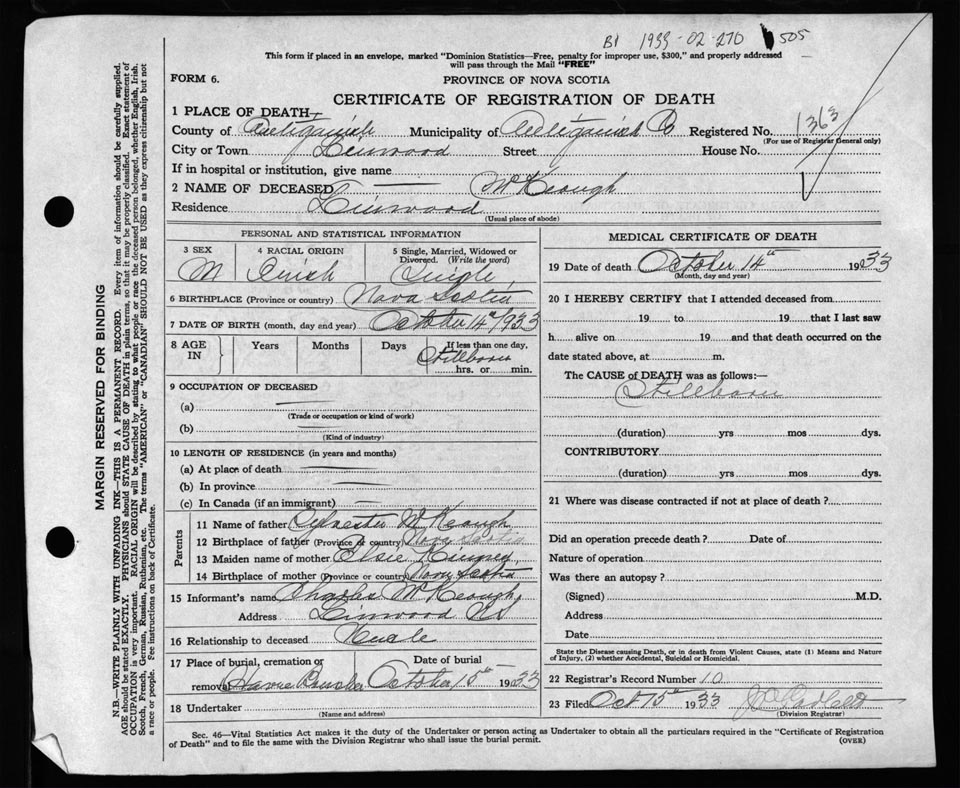 B1 1933-02-270 505
This form if placed in an envelope, marked "Dominion Statistics—Free, penalty for improper use, $300," and properly addressed
will pass through the Mail "FREE"
FORM 6.
PROVINCE OF NOVA SCOTIA
CERTIFICATE OF REGISTRATION OF DEATH
1 PLACE OF DEATH
County of Antigonish Municipality of Antigonish Co Registered No. 1363
(For use of Registrar General only)
City or Town Linwood Street House No.
If in hospital or institution, give name
2 NAME OF DECEASED McKeough
Residence Linwood
(Usual place of abode)
PERSONAL AND STATISTICAL INFORMATION
3 SEX 4 RACIAL ORIGIN 5 Single, Married, Widowed or Divorced. (Write the word)
M Irish Single
6 BIRTHPLACE (Province or country) Nova Scotia
7 DATE OF BIRTH (month, day and year) October 14th 1933
8 AGE IN Years Months Days If less than one day,
Stillborn
hrs. or min.
9 OCCUPATION OF DECEASED
(a)
(Trade or occupation or kind of work)
(b)
(Kind of industry)
10 LENGTH OF RESIDENCE (in years and months)
(a) At place of death
(b) In province
(c) In Canada (if an immigrant)
Parents
11 Name of father Sylvester McKeough
12 Birthplace of father (Province or country) Nova Scotia
13 Maiden name of mother Elsie
14 Birthplace of mother (Province or country) Nova Scotia
15 Informant's name Charles McKeough
Address Linwood
16 Relationship to deceased Uncle
17 Place of burial, cremation or Date of burial
removal Havre Boucher October 15th 1933
18 Undertaker
(Name and address)
MEDICAL CERTIFICATE OF DEATH
19 Date of death October 14th 1933
(Month, day and year)
20 I HEREBY CERTIFY that I attended deceased from
19 to 19 that I last saw
h alive on 19 and that death occurred on the
date stated above, at m.
The CAUSE of DEATH was as follows:—
Stillborn
(duration) yrs mos dys.
CONTRIBUTORY
(duration) yrs mos dys.
21 Where was disease contracted if not at place of death?
Did an operation precede death? Date of
Nature of operation
Was there an autopsy?
(Signed) M.D.
Address
Date
State the Disease causing Death, or in death from Violent Causes, state (1) Means and Nature
of Injury, (2) whether Accidental, Suicidal or Homicidal.
22 Registrar's Record Number 10
23 Filed Oct 15th 1933
(Division Registrar)
Sec. 46—Vital Statistics Act makes it the duty of the Undertaker or person acting as Undertaker to obtain all the particulars required in the "Certificate of Registration
of Death" and to file the same with the Division Registrar who shall issue the burial permit. (OVER)
MARGIN RESERVED FOR BINDING
N.B.—WRITE PLAINLY WITH UNFADING INK—THIS IS A PERMANENT RECORD. Every item of information should be carefully supplied.
AGE should be stated EXACTLY. PHYSICIANS should STATE CAUSE OF DEATH in plain terms, so that it may be properly classified. Exact statement of
OCCUPATION is very important. RACIAL ORIGIN will be described by stating to what people or race the deceased person belonged, whether English, Irish,
Scotch, French, German, Russian, Ruthenian, etc. The terms "AMERICAN" or "CANADIAN" SHOULD NOT BE USED as they express citizenship but not
a race or people. See instructions on back of Certificate.